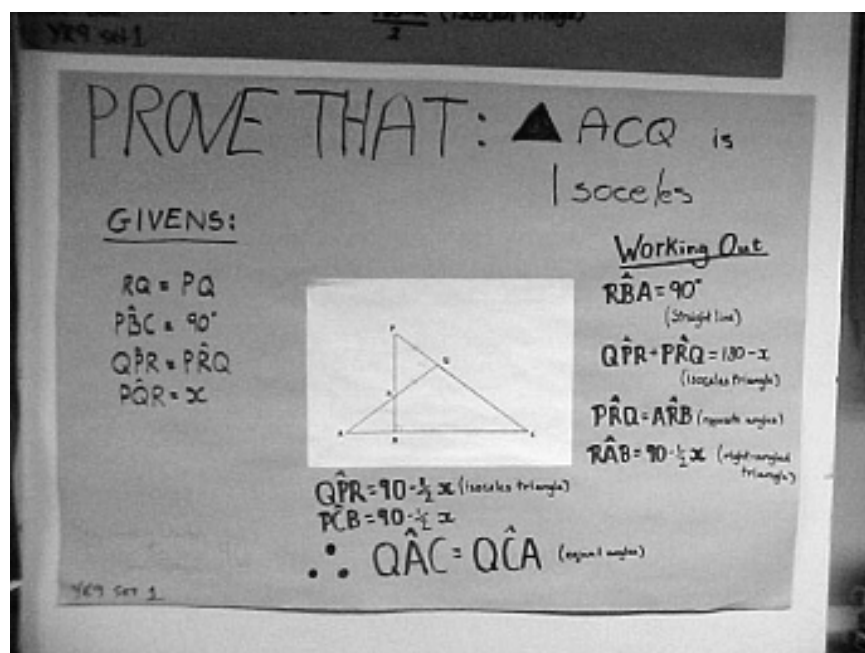 YR9 set 1
2
PROVE THAT: ▲ ACQ is
Isoceles
GIVENS:
RQ = PQ
PB̂C = 90°
QP̂R = PR̂Q
PQ̂R = x
P
Q
R
A
B
C
Working Out
RB̂A = 90°
(Straight line)
QP̂R + PR̂Q = 180 - x
(isoceles triangle)
PR̂Q = AR̂B (opposite angles)
RÂB = 90 - ½ x (right-angled
triangle)
QP̂R = 90 - ½ x (isoceles triangle)
PĈB = 90 - ½ x
∴ QÂC = QĈA (equal angles)
YR9 SET 1